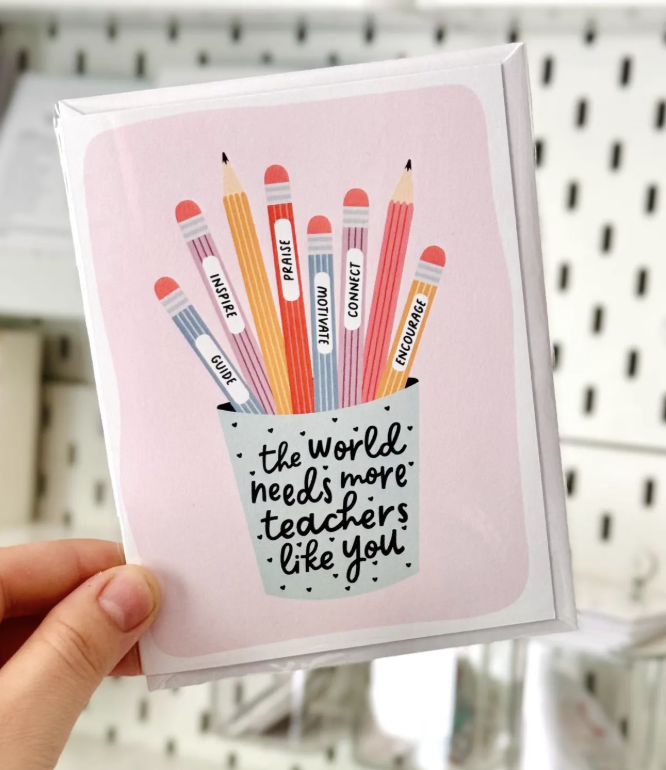 GUIDE
INSPIRE
PRAISE
MOTIVATE
CONNECT
ENCOURAGE
the world
needs more
teachers
like you